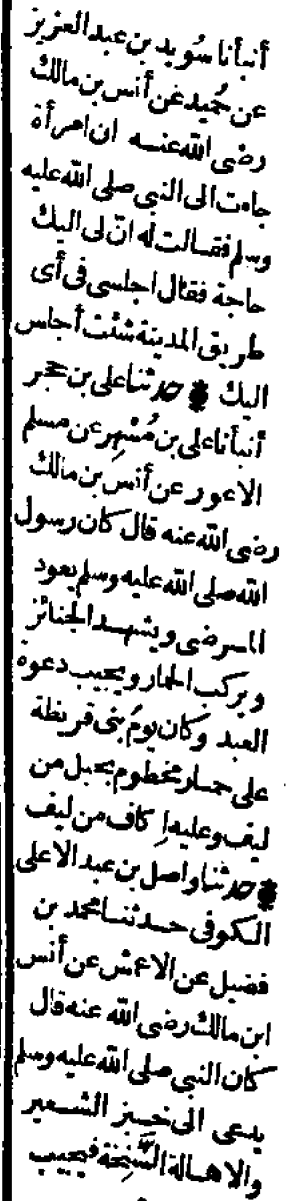 أنبأنا سُويد بن عبد العزيز
عن حُميد عن أنس بن مالك
رضى الله عنه ان امرأة
جاءت الى النبى صلى الله عليه
وسلم فقالت له انّ لى اليك
حاجة فقال اجلسى فى أى
طريق المدينة شئت أجلس
اليك * حدثنا على بن حجر
أنبأنا على بن مُسْهِر عن مسلم
الاعور عن أنس بن مالك
رضى الله عنه قال كان رسول
الله صلى الله عليه وسلم يعود
المرضى ويشهد الجنائز
ويركب الحمار ويجيب دعوة
العبد وكان يومَ بنى قريظة
على حمار مخطوم بحبل من
ليف وعليه إكاف من ليف
* حدثنا واصل بن عبد الاعلى
الكوفى حدثنا محمد بن
فضيل عن الاعمش عن أنس
ابن مالك رضى الله عنه قال
كان النبى صلى الله عليه وسلم
يدعى الى خبز الشعير
والاهالة السَّنِخة فيجيب